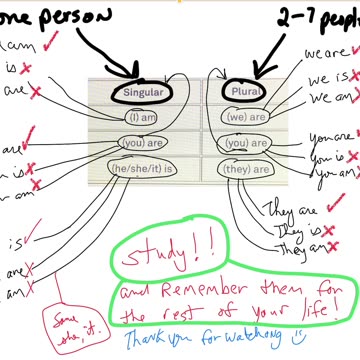 one person
2-7 people
I am
is
are
Singular
(I) am
(you) are
(he/she/it) is
Plural
(we) are
(you) are
(they) are
we are
we is
we am
are
is
am
you are
you is
you am
is
are
am
They are
They is
They am
same
she, it.
study!!
and Remember them for
the rest of your life!
Thank you for watchong